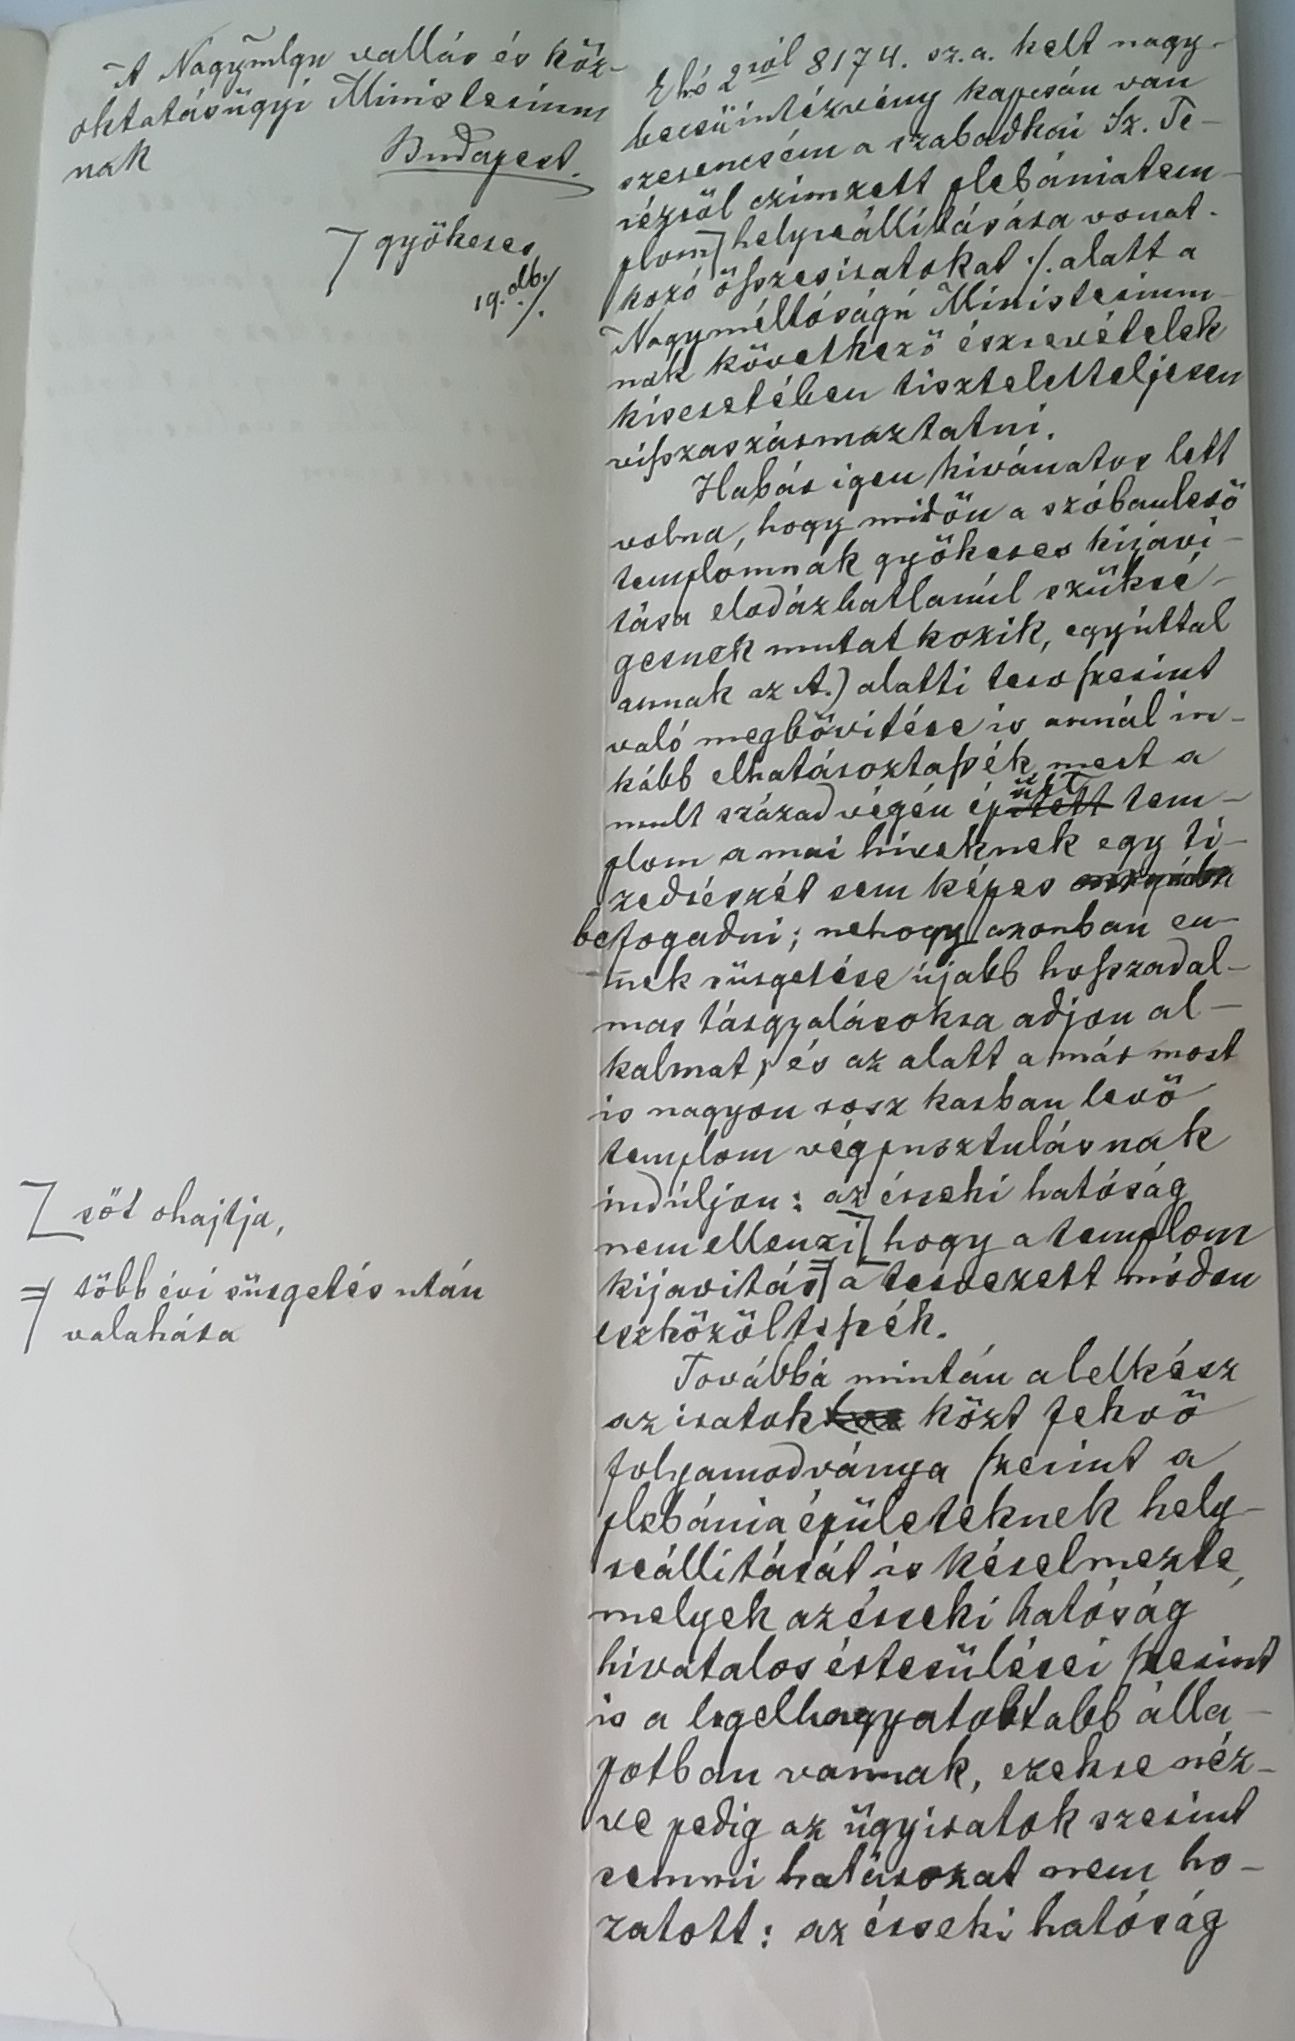 A Nagymlgu vallás és köz-
oktatásügyi Ministerium
nak
Budapest.
gyökeres
19. db. ./.
E hó 2 ról 8174. sz. a. kelt nagy-
becsü intézvény kapcsán van
szerencsém a szabadkai Sz. Te-
rézröl czimzett plebániatem-
plom helyreállitására vonat-
kozó összesiratokat ./. alatt a
Nagyméltóságú Ministerium-
nak következö észrevételek
kiseretében tiszteletteljesen
visszaszármaztatni.
Habár igen kivánatos lett
volna, hogy midön a szóbanlevö
templomnak gyökeres kijavi-
tása elodázhatlanúl szüksé-
gesnek mutatkozik, egyúttal
annak az A.) alatti terv szerint
való megbövitése is annál in-
kább elhatároztassék, mert a
mult század végén épitett ült tem-
plom a mai hiveknek egy ti-
zedrészét sem képes
befogadni; nehogy azonban en-
nek sürgetése újabb hosszadal-
mas tárgyalásokra adjon al-
kalmat, és az alatt a már most
is nagyon rosz karban levö
templom végpusztulásnak
indúljon: az érseki hatóság
nem ellenzi hogy a templom
kijavitás a tervezett módon
eszközöltessék.
söt ohajtja,
több évi sürgetés után
valahára
Továbbá mintán a lelkész
az iratok közt fekvö
folyamodványa szerint a
plebánia épületeknek hely-
reállitását is kérelmezte,
melyek az érseki hatóság
hivatalos értesülései szerint
is a legelhagyatottabb álla-
potban vannak, ezekre néz-
ve pedig az ügyiratok szerint
semmi határozat nem ho-
zatott: az érseki hatóság